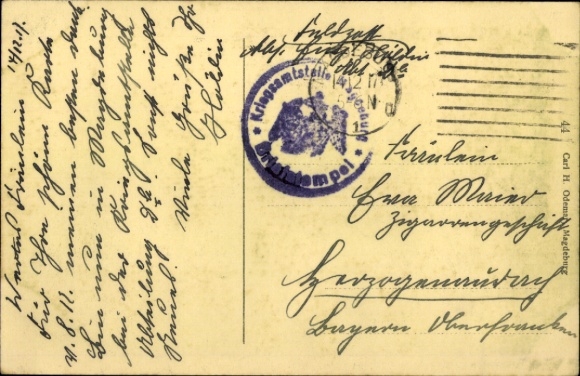 14/12.17.
Wertes Fräulein
Für Ihre schöne Karte
v. 8.12. meinen besten Dank.
Bin nun in Magdeburg
bei der Kriegsamtstelle
Abteilung Sonst nicht
Neues. Viele Grüße Ihr
Höllein
Feldpost
Abs. Höllein
Kriegsamtstelle Magdeburg
Briefstempel
Fräulein
Eva Maier
Zigarrengeschäft
Herzogenaurach
Bayern Oberfranken
44 Carl H. Odemar, Magdeburg